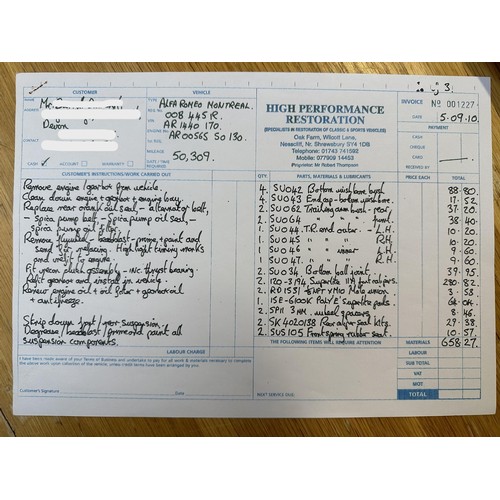 1 of 3
CUSTOMER
NAME
Devon
CONTACT
CASH ✓ ACCOUNT WARRANTY
VEHICLE
TYPE ALFA ROMEO MONTREAL.
REG. NO. OOB 445R.
ENGINE NO. AR1440 170.
AR00565 SO 130.
MILEAGE 50,309.
DATE / TIME REQUIRED
HIGH PERFORMANCE
RESTORATION
(SPECIALISTS IN RESTORATION OF CLASSIC & SPORTS VEHICLES)
Oak Farm, Wilcott Lane,
Nesscliff, Nr. Shrewsbury SY4 1DB
Telephone: 01743 741592
Mobile: 077909 14463
Proprietor: Mr Robert Thompson
INVOICE No 001227
DATE 5.09.10.
PAYMENT
CASH
CHEQUE
CARD
CUSTOMER'S INSTRUCTIONS/WORK CARRIED OUT
Remove engine/gearbox from vehicle.
Clean down engine + gearbox + engine bay
Replace rear crank oil seal - alternator belt,
- spica pump belt - Spica pump oil seal, -
spica pump oil filter.
Remove flywheel - beadblast - prime + paint and
send for refacing. Highlight timing marks
and refit to engine.
Fit new clutch assembly - inc thrust bearing.
Refit gearbox and install in vehicle.
Renew engine oil + oil filter + gearbox oil
+ antifreeze.
Strip down front/rear suspension.
Degrease/beadblast/prime and paint all
suspension components.
LABOUR CHARGE
I have been made aware of your Terms of Business and undertake to pay for all work & materials necessary to complete
the above subject to the return of the vehicle, unless credit terms have been arranged by you.
Customer's Signature Date
QTY. PARTS, MATERIALS & LUBRICANTS PRICE EACH TOTAL
4. SU042 Bottom wishbone bush. 88.80
4. SU043 End cap - bottom wishbone 17.52
2. SU062 Trailing arm bush - rear. 37.20
2. SU064 " " " - front. 38.40
1. SU044 T.R. arm outer - L.H. 10.20
1. SU045 " " " R.H. 10.20
1. SU046 " " inner L.H. 9.60
1. SU047 " " " R.H. 9.60
2. SU034 Bottom ball joint. 39.95
2. 120-3194 Superlite
2. 11SP 3MM. wheel spacers. 8.46
2. SK4020138 Rear caliper seal kits. 29.38
2. RUS105 Front spring rubber seat. 10.57
THE FOLLOWING ITEMS WILL REQUIRE ATTENTION
NEXT SERVICE DUE:
MATERIALS 658.27.
LABOUR
SUB TOTAL
VAT
MOT
TOTAL